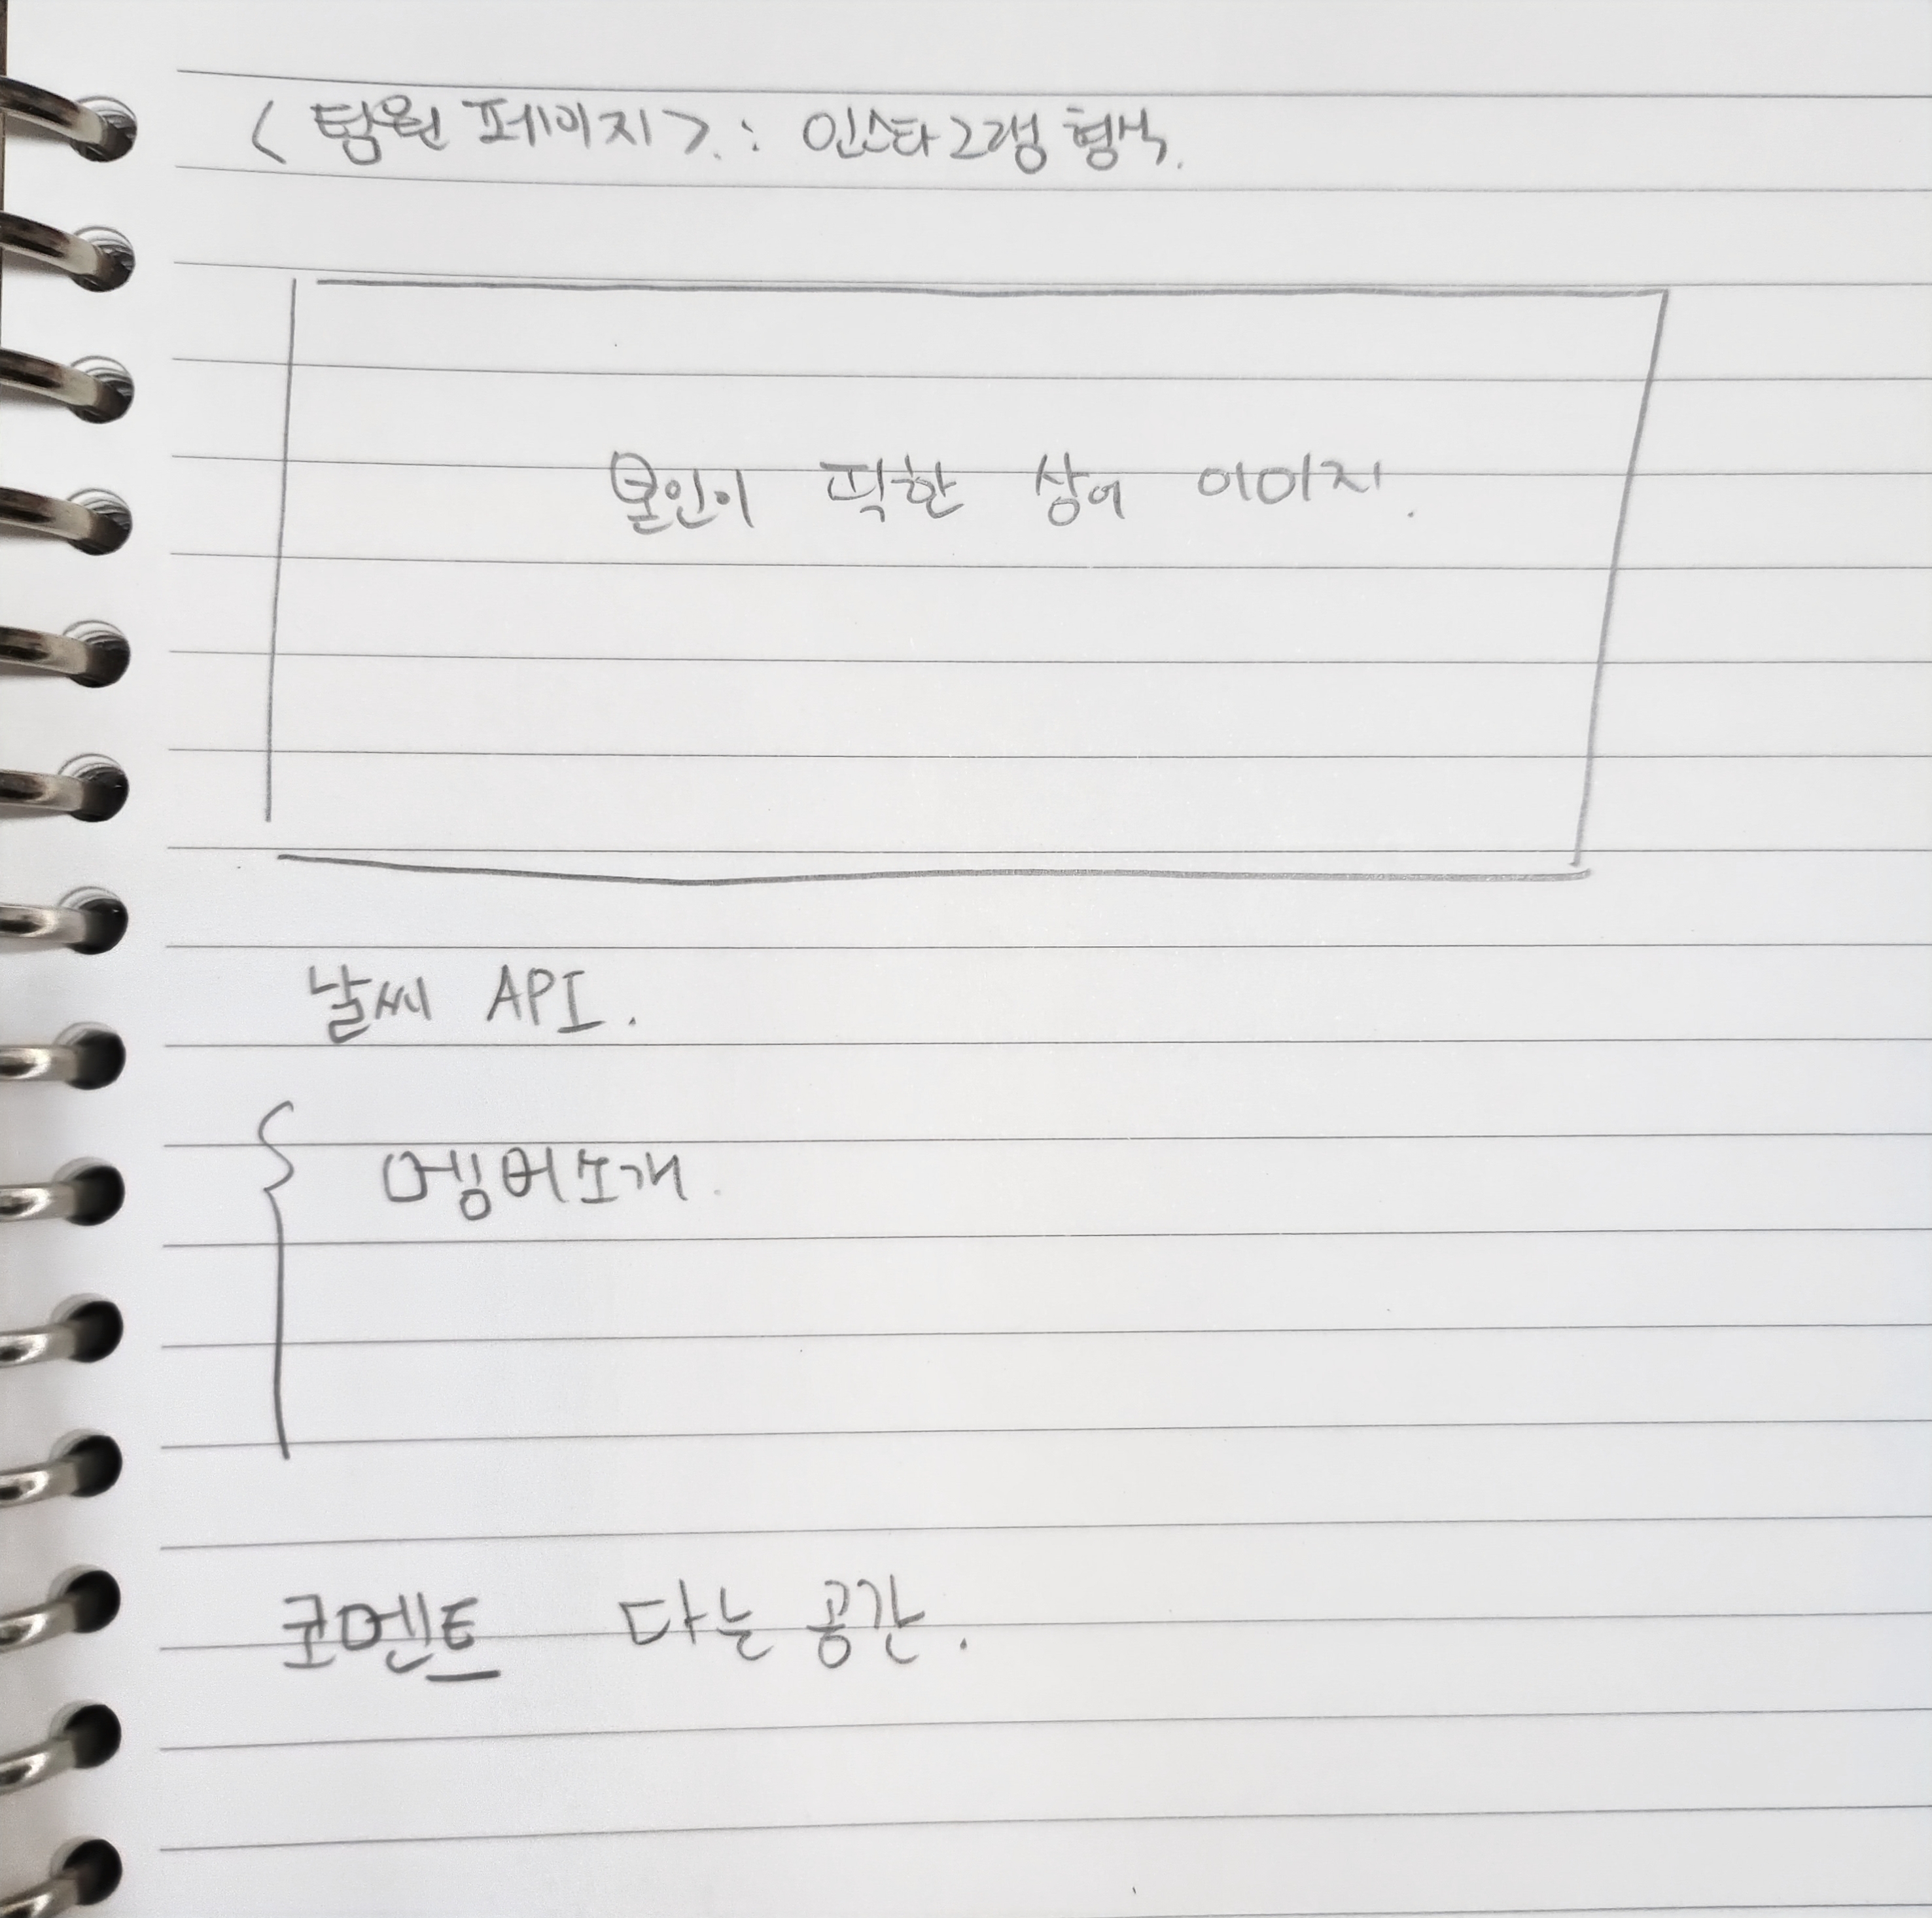 <팀원 페이지>. : 인스타그램 형식.
본인이 픽한 상어 이미지.
날씨 API.
멤버소개.
코멘트 다는 공간.